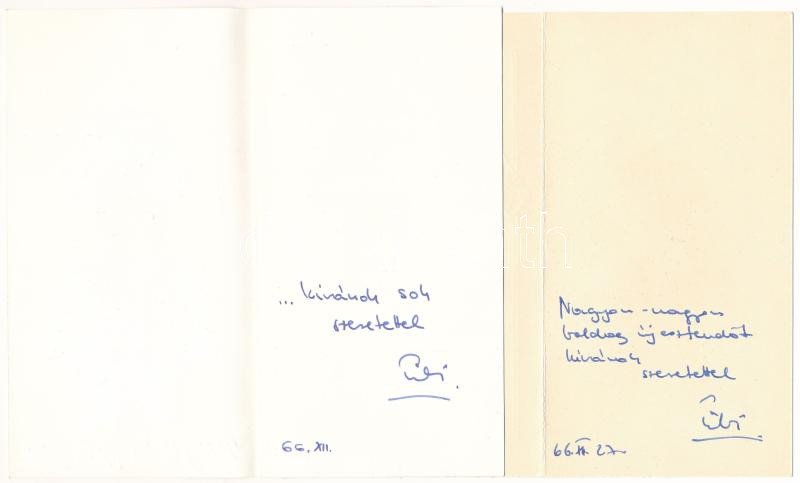 ... kívánok sok
szeretettel
66. XII.
Nagyon-nagyon
boldog új esztendőt
kívánok
szeretettel
66. XII. 27.